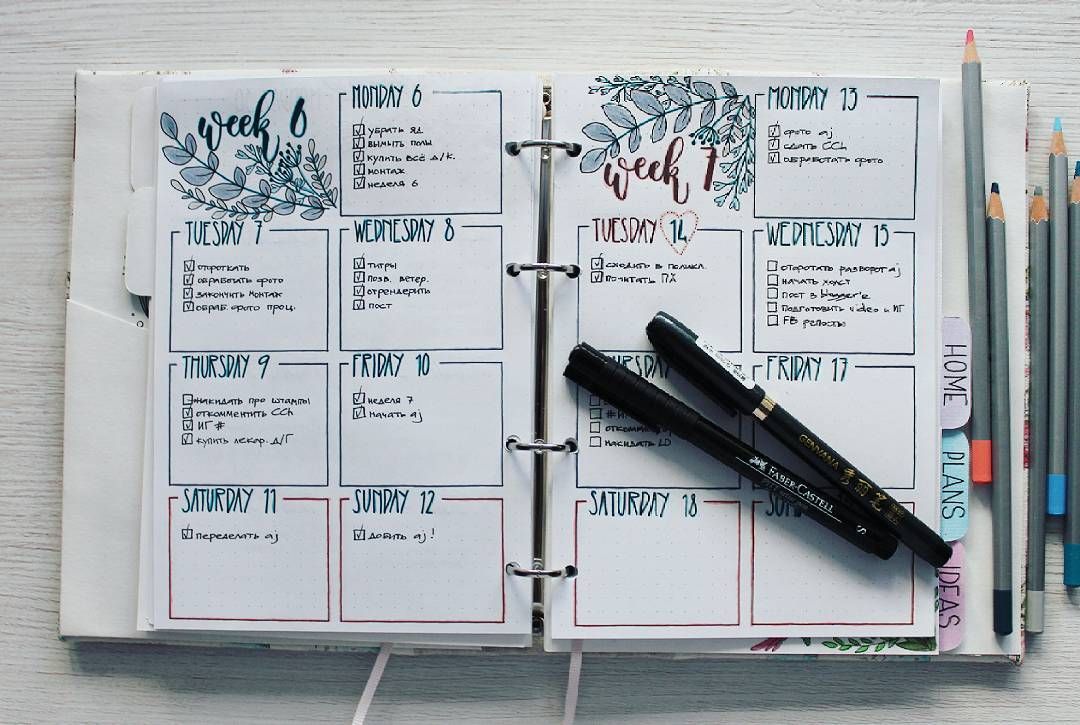 week 6
MONDAY 6
убрать ЯД
вымыть полы
купить всё д/к.
монтаж
неделя 6
TUESDAY 7
отсроткать
обработать фото
закончить монтаж
обраб. фото проц.
WEDNESDAY 8
титры
позв. ветер.
отрендерить
пост
THURSDAY 9
накидать про штампы
откомментить CCh
ИГ #
купить лекар. д/Г
FRIDAY 10
неделя 7
начать aj
SATURDAY 11
переделать aj
SUNDAY 12
добить aj!
week 7
MONDAY 13
фото aj
сдать CCh
обработать фото
TUESDAY 14
сходить в поликл.
почитать ПХ
WEDNESDAY 15
разворот aj
начать холст
пост в blogger'е
подготовить video и ИГ
FB репосты
#ИГ
накидать LD
FRIDAY 17
SATURDAY 18
HOME
PLANS
IDEAS
FABER-CASTELL
S
GENVANA